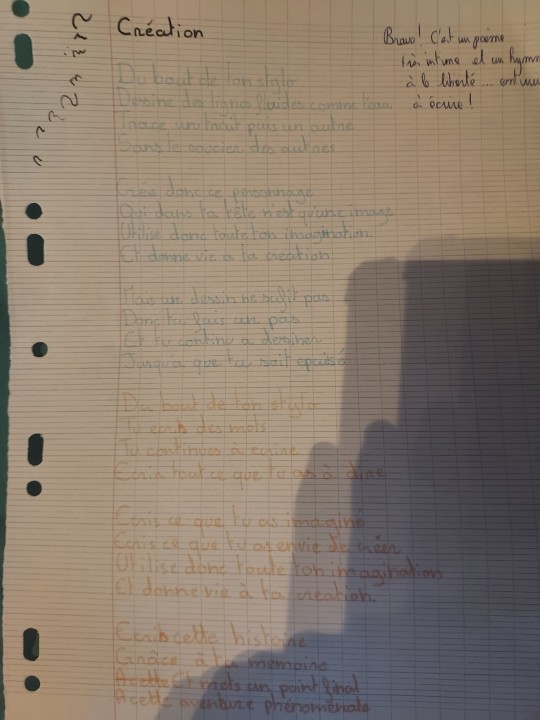 Création
Bravo! C'est un poème
très intime et un hymne
à la liberté... continue
à écrire!
Du bout de ton stylo
Dessine des lignes fluides comme l'eau
Trace un trait puis un autre
Sans te soucier des autres
Crée donc ce personnage
Qui dans ta tête n'est qu'une image
Utilise donc toute ton imagination
Et donne vie a ta création
Mais un dessin ne sufit pas
Donc tu fais un pas
Et tu continu a dessiner
Jusqu'a que tu soit épuisé
Du bout de ton stylo
Tu écris des mots
Tu continues à écrire
Ecrir tout ce que tu as à dire
Ecris ce que tu as imaginé
Ecris ce que tu as envie de créer
Utilise donc toute ton imagination
Et donne vie à ta création.
Ecris cette histoire
Grâce à ta mémoire
A cette Et mets un point final
A cette aventure phénoménale